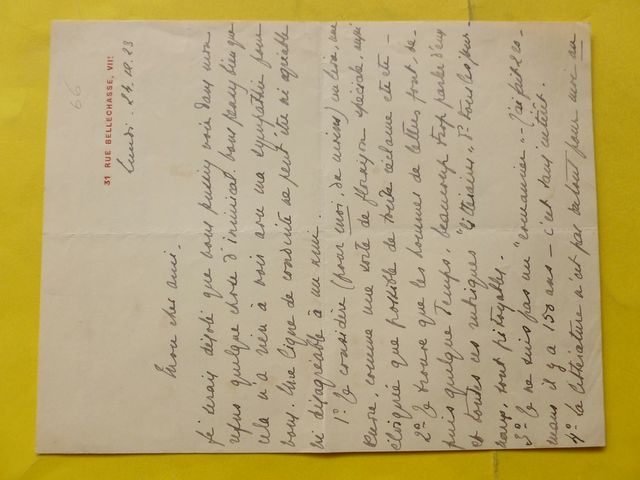 66
31 RUE BELLECHASSE, VIIe
Lundi. 24.12.23
Mon cher ami.
je serais désolé que vous puissiez voir dans mon
refus quelque chose d'inamical. Vous savez bien que
cela n'a rien à voir avec ma sympathie pour
vous. Une ligne de conduite ne peut être ni agréable
ni désagréable à un ami.
1° Je considère (pour moi, du moins) un livre, une
œuvre, comme une sorte de floraison spéciale, aussi
éloignée que possible de toute réclame etc etc –
2° Je trouve que les hommes de lettres font, de-
puis quelque temps, beaucoup trop parler d'eux
et toutes ces intrigues "littéraires", de tous les jour-
naux, sont pitoyables.
3° Je ne suis pas un "romancier" – j'ai fait 2 ro-
mans il y a 150 ans – c'est sans intérêt.
4° La littérature n'est pas surtout pour moi un